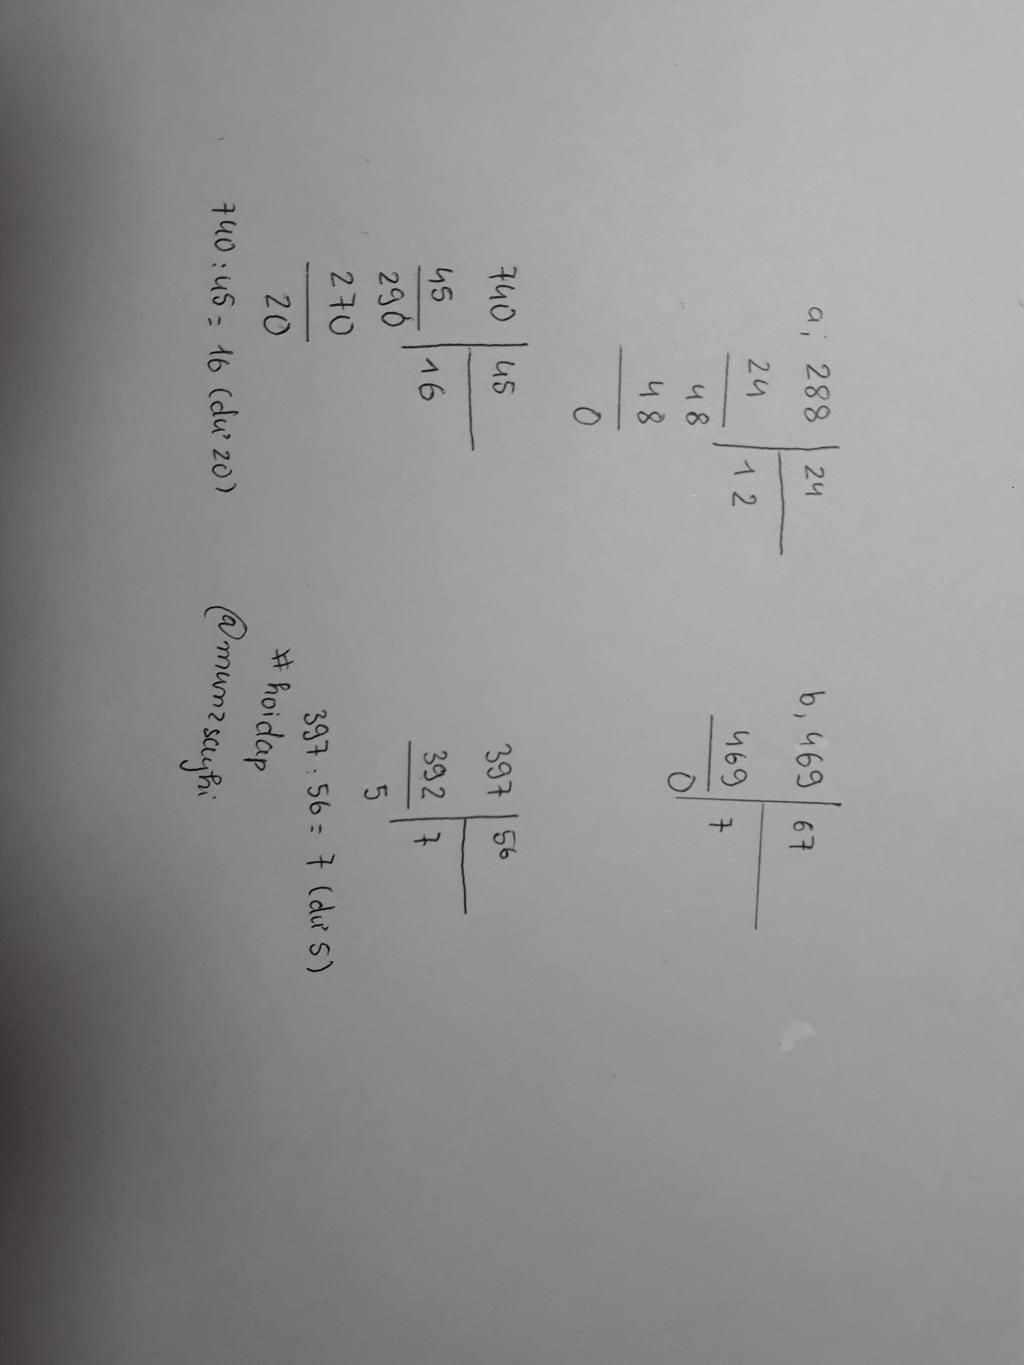 a; 288 | 24
24 | 12
48
48
0
740 | 45
45 | 16
290
270
20
740 : 45 = 16 (dư 20)
b, 469 | 67
469 | 7
0
397 | 56
392 | 7
5
397 : 56 = 7 (dư 5)
# hoidap
@munzsayhi